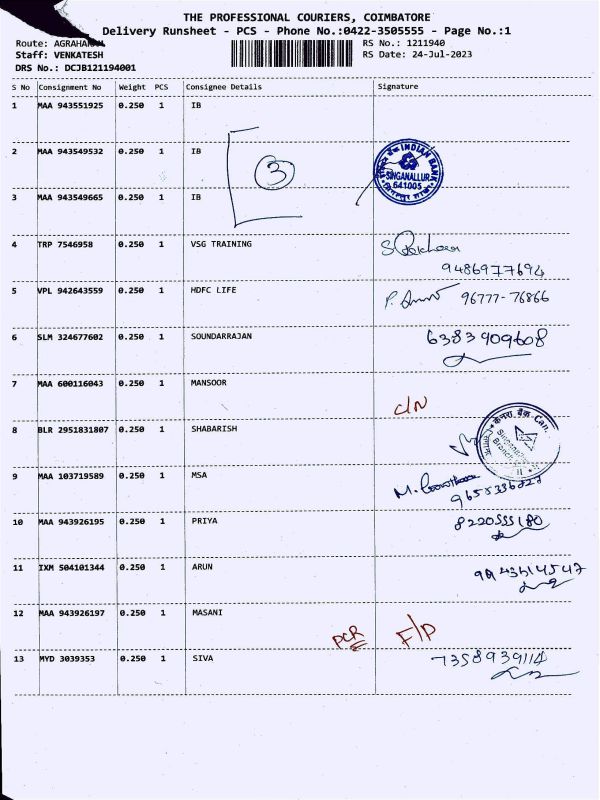 THE PROFESSIONAL COURIERS, COIMBATORE
Delivery Runsheet - PCS - Phone No.:0422-3505555 - Page No.:1
Route: AGRAHARAM RS No.: 1211940
Staff: VENKATESH RS Date: 24-Jul-2023
DRS No.: DCJB121194001
S No Consignment No Weight PCS Consignee Details Signature
1 MAA 943551925 0.250 1 IB
2 MAA 943549532 0.250 1 IB
3
INDIAN BANK
SINGANALLUR
641005
3 MAA 943549665 0.250 1 IB
4 TRP 7546958 0.250 1 VSG TRAINING
9486977694
5 VPL 942643559 0.250 1 HDFC LIFE 96777-76866
6 SLM 324677602 0.250 1 SOUNDARRAJAN 6383909608
7 MAA 600116043 0.250 1 MANSOOR
C/N
8 BLR 2951831807 0.250 1 SHABARISH
केनरा बैंक Can
Branch
9 MAA 103719589 0.250 1 MSA
10 MAA 943926195 0.250 1 PRIYA 8220555180
11 IXM 504101344 0.250 1 ARUN
12 MAA 943926197 0.250 1 MASANI
PCR F/P
13 MYD 3039353 0.250 1 SIVA 7358939114